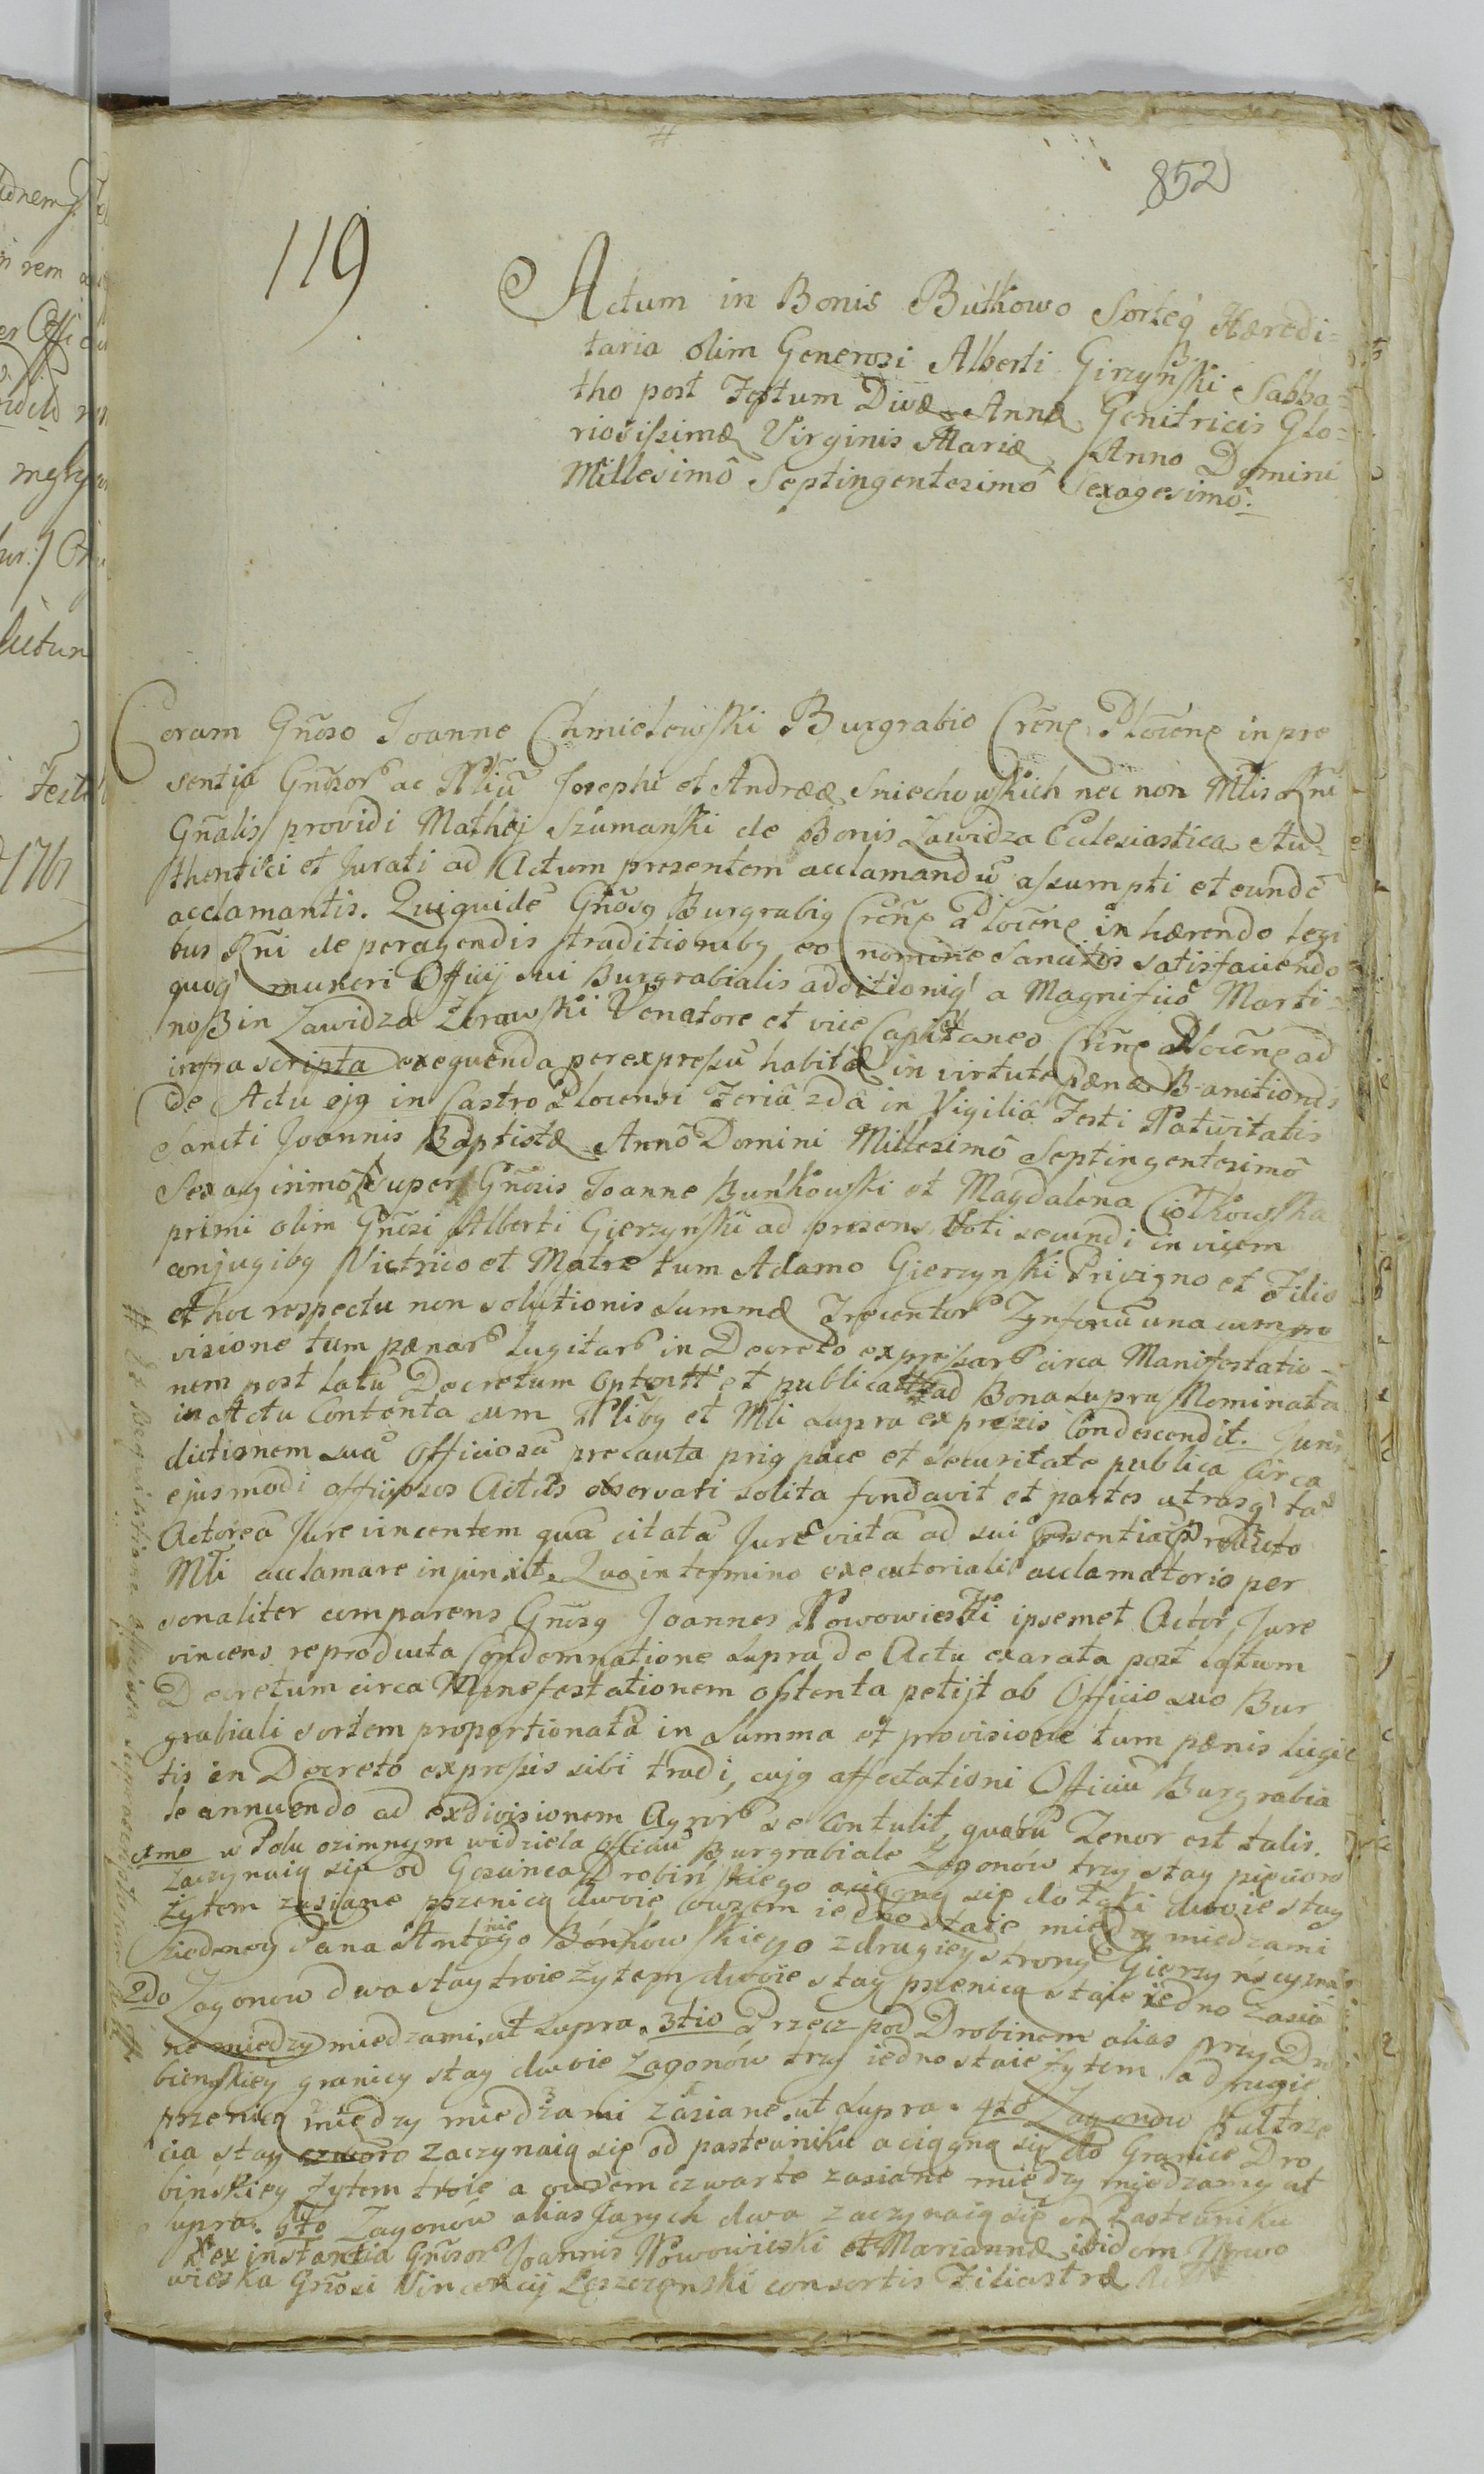 852
119
Actum in Bonis Butkowo Sorteq Hæredi=
taria olim Generosi Alberti Girzynski Sabba=
tho post Festum Divæ Annæ Genitricis Glo=
riosissimæ Virginis Mariæ Anno Domini
Millesimô Septingentesimô Sexagesimô.
Coram Gnoso Joanne Chmielewski Burgrabio Crens Plocens in pre
sentia Gnosor ac Nliũ Josephi et Andreæ Sniechowskich nec non Mtis Rni
Gnalis providi Mathej Szumanski de Bonis Zawidza Ecclesiastica Au
thentici et Jurati ad Actum presentem acclamandũ assumpti et eundẽ
acclamantis. Quiquidẽ Gnosq Burgrabiq Crens Plocens in hærendo legi
bus Rni de peragendis traditionibq eo nomine sancitis satisfaciendo
quoq muneri Officij sui Burgrabialis additioniq a Magnifico Marti=
no in Zawidza Zorawski Venatore et vice Capitaneo Crens Plocens ad
infra scripta exequenda per expressũ habitæ in virtute Pænæ Banitionis
De Actu ejq in Castro Plocensi Feria 2da in Vigilia Festi Nativitatis
Sancti Joannis Baptistæ Annô Domini Millesimô Septingentesimô
Sexagesimô super Gnosis Joanne Bunkowski et Magdalena Ciołkowska
primi olim Gnosi Alberti Gierzynski ad presens Voti secundi in vicem
conjugibq Victrico et Matre tum Adamo Gierzynski Privigno et Filio
et hoc respectu non solutionis summæ Trecentor Zynfonũ una cum pro
visione tum pænar lugitar in Decreto expressar circa Manifestatio=
nem post latũ Decretum et publicat ad Bona supra Nominata
in Actu Contenta cum Nlibq et Mli supra expressis Condescendit. Juris
dictionem suã Officiosã precauta priq pace et securitate publica circa
ejusmodi officiosos Actus observari solita fundavit et partes utrasq tã
Actoreã Jure vincentem quã citatã Jure victã ad sui presentiã
Mli acclamare injunxit. Quo in termino executoriali acclamatorio per
sonaliter comparens Gnosq Joannes Nowowieski ipsemet Actor Jure
vincens reproducta Condemnatione supra de Actu exarata post latum
Decretum circa Manefestationem obtenta petijt ab Officio suo Bur
grabiali sortem proportionatã in summa et provisione tum pænis lugi
tis in Decreto expressis sibi tradi, cujq affectationi Officiũ Burgrabia
le annuendo ad exdivisionem Agror se contulit, quorũ Tenor est talis.
1mo w Polu ozimnym widziela Officiũ Burgrabiale Zagonów trzy stay pięcioro
zaczynaią się od Goscinca Drobinskiego aciągną się do Łąki dwoie stay
żytem zasiane pszenicą dwoie owsem iedne staie między miedzami
ziedney Pana Antoniego Bońkowskiego zdrugiey strony
2do Zagonow dwa stay troie żytem dwoie stay pszenicą staie iedno zasia
ne między miedzami, ut supra. 3tio Przecz pod Drobinem alias przy Dro
binskiey granicy stay dwoie Zagonów trzy iedno staie żytem a drugie
pszenicą między miedzami zasiane. ut supra. 4to Zagonow puł trze
cia stay czworo zaczynaią się od pastewniku aciągną się do Granice Dro
binskiey żytem troie a owsem czwarte zasiane między miedzamy ut
upra. 5to Zagonów alias Jarych dwa zaczynaią się od Pastewniku
ex instantia Gnosor Joannis Nowowieski et Mariannæ ibidem Nowo
wieska Gnosi Vincencij Leszczenski consortis Filiastræ